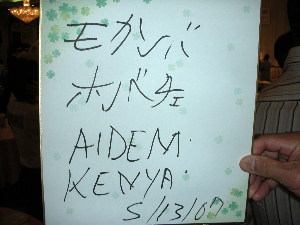 モカンバ
ホバチェ
AIDEM.
KENYA.
5/13/07